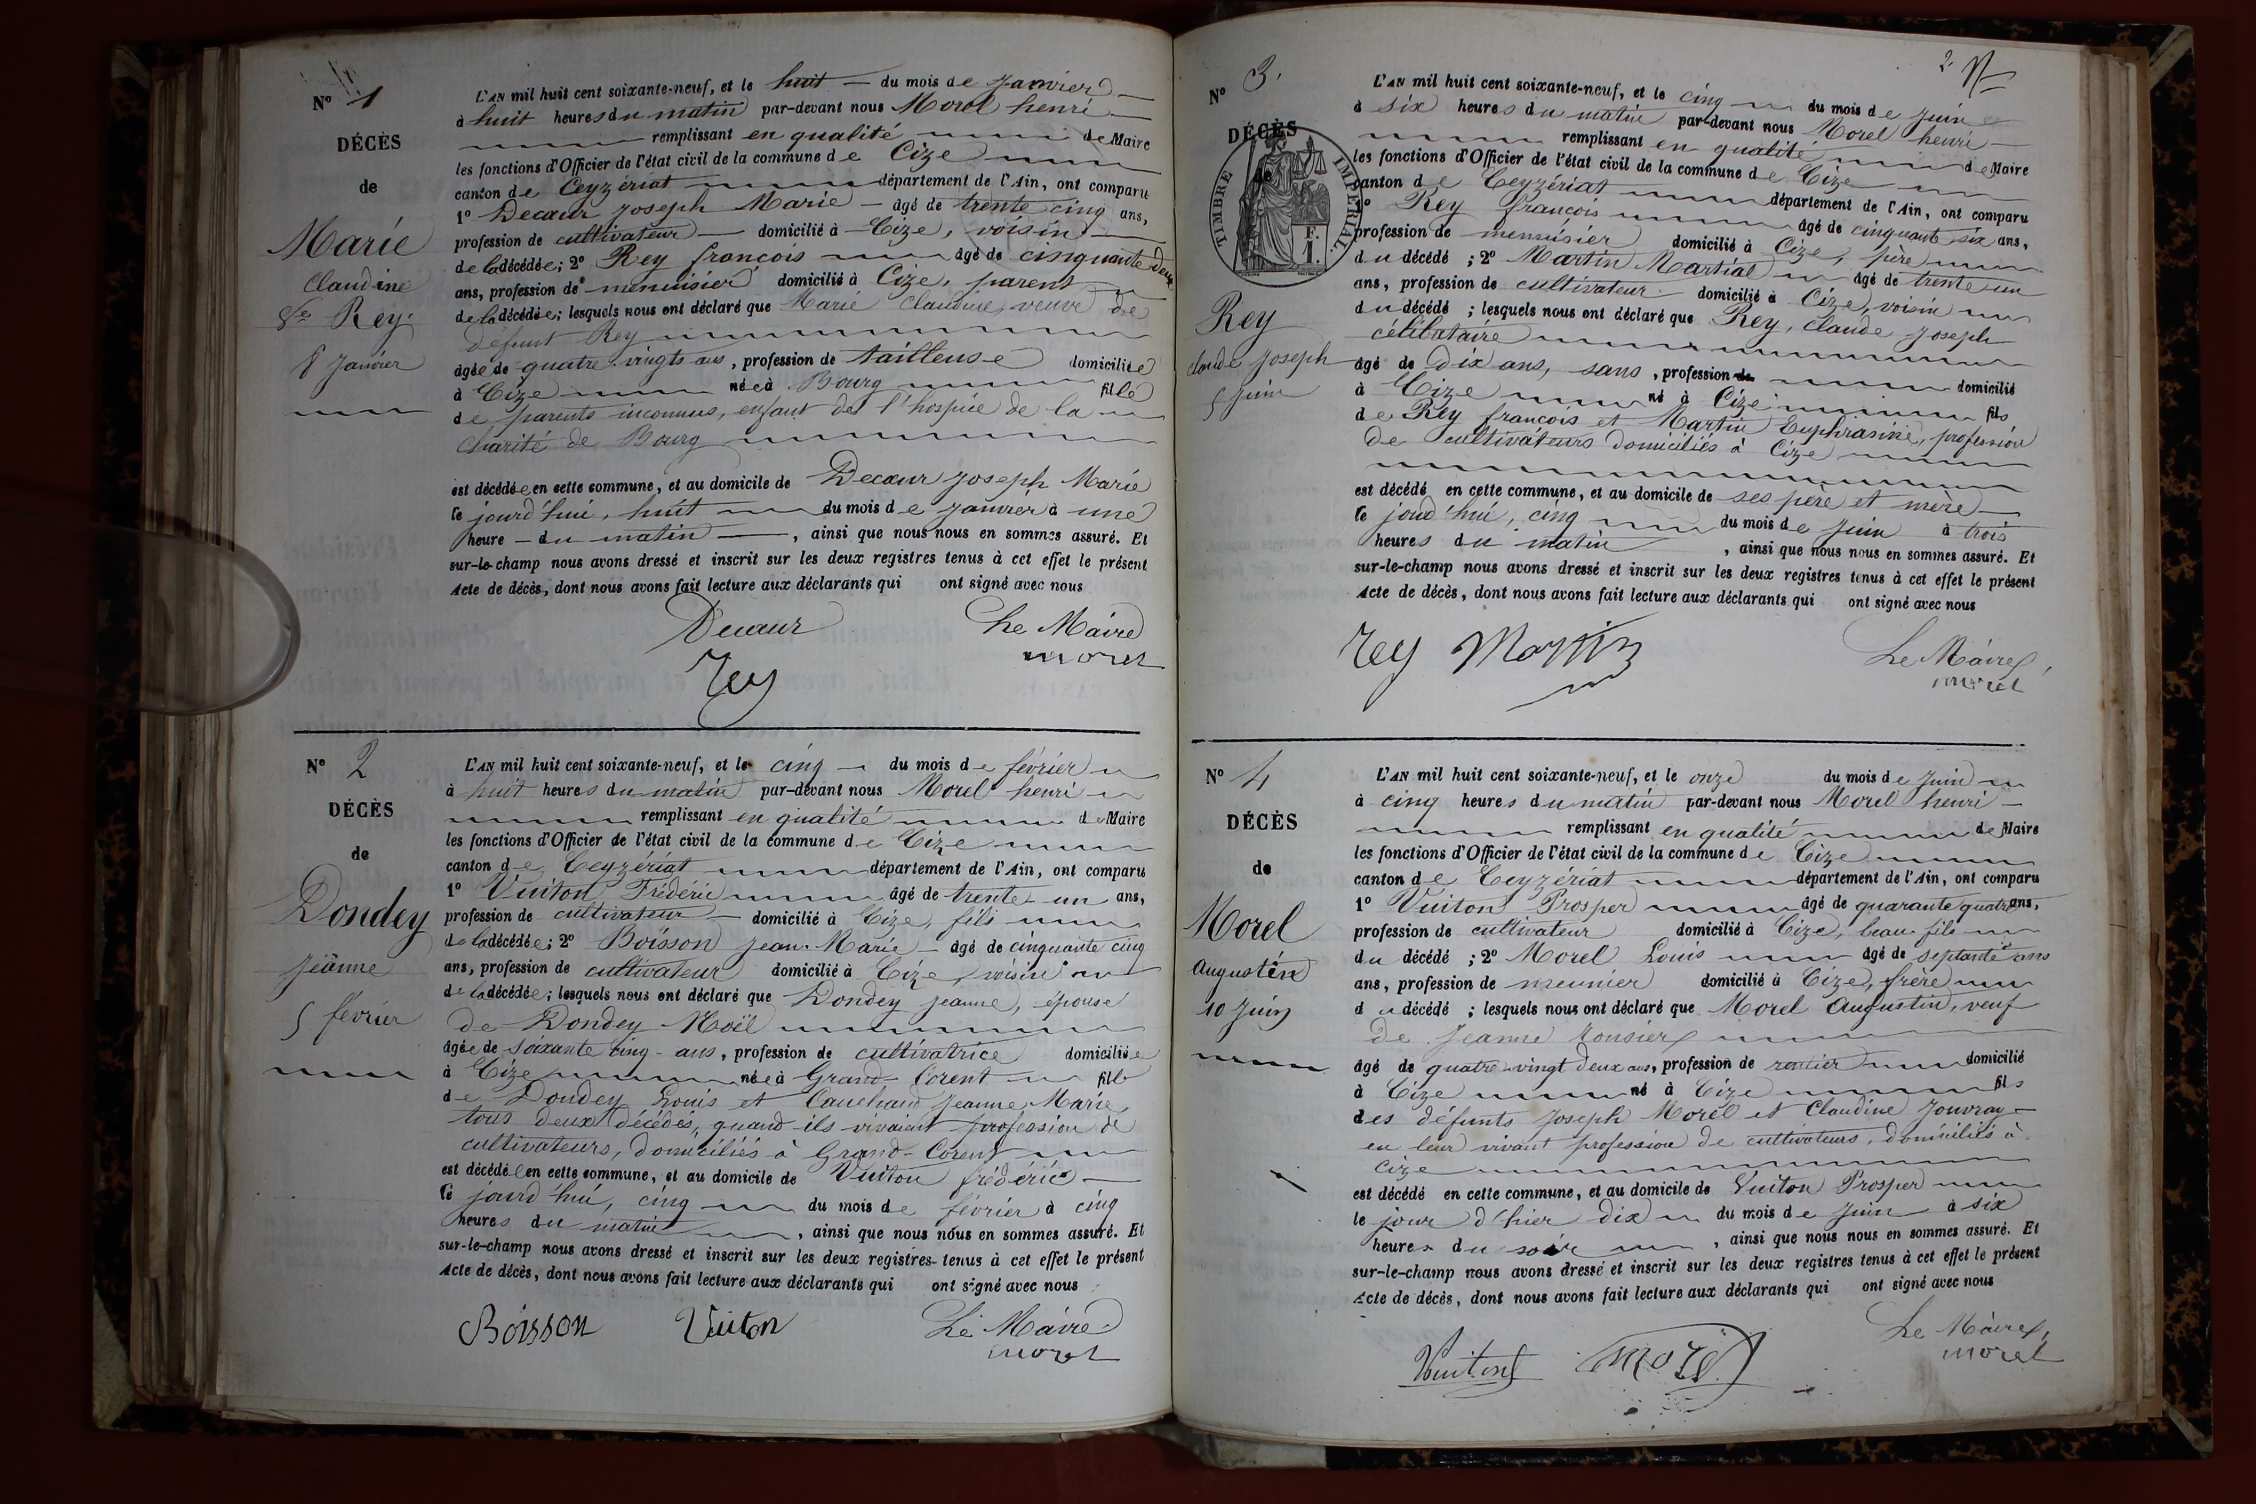 Nº 1
DÉCÈS
de
Marie
Claudine
Vᵉ Rey
8 Janvier
L'AN mil huit cent soixante-neuf, et le huit du mois de Janvier
à huit heures du matin par-devant nous Morel henri
remplissant en qualité de Maire
les fonctions d'Officier de l'état civil de la commune de Cize
canton de Ceyzériat département de l'Ain, ont comparu
1º Decœur Joseph Marie âgé de trente cinq ans,
profession de cultivateur domicilié à Cize, voisin
de la décédée; 2º Rey françois âgé de cinquante deux
ans, profession de menuisier domicilié à Cize, parent
de la décédée; lesquels nous ont déclaré que Marie Claudine, veuve de
défunt Rey
âgée de quatre vingts ans, profession de tailleuse domiciliée
à Cize née à Bourg fille
de parents inconnus, enfant de l'hospice de la
Charité de Bourg
est décédée en cette commune, et au domicile de Decœur Joseph Marie
le jourd'hui, huit du mois de Janvier à une
heure du matin, ainsi que nous nous en sommes assuré. Et
sur-le-champ nous avons dressé et inscrit sur les deux registres tenus à cet effet le présent
Acte de décès, dont nous avons fait lecture aux déclarants qui ont signé avec nous
Decœur Le Maire
morel
Rey
Nº 2
DÉCÈS
de
Dondey
Jeanne
5 février
L'AN mil huit cent soixante-neuf, et le cinq du mois de février
à huit heures du matin par-devant nous Morel henri
remplissant en qualité de Maire
les fonctions d'Officier de l'état civil de la commune de Cize
canton de Ceyzériat département de l'Ain, ont comparu
1º Vuiton Frédéric âgé de trente un ans,
profession de cultivateur domicilié à Cize, fils
de la décédée; 2º Boisson Jean-Marie âgé de cinquante cinq
ans, profession de cultivateur domicilié à Cize, voisin
de la décédée; lesquels nous ont déclaré que Dondey Jeanne, épouse
de Dondey Noël
âgée de soixante cinq ans, profession de cultivatrice domiciliée
à Cize née à Grand-Corent fille
de Dondey Louis et Jeanne Marie,
tous deux décédés, quand ils vivaient profession de
cultivateurs, domiciliés à Grand-Corent
est décédée en cette commune, et au domicile de Vuiton frédéric
le jourd'hui, cinq du mois de février à cinq
heures du matin, ainsi que nous nous en sommes assuré. Et
sur-le-champ nous avons dressé et inscrit sur les deux registres tenus à cet effet le présent
Acte de décès, dont nous avons fait lecture aux déclarants qui ont signé avec nous
Boisson Vuiton Le Maire
morel
2
Nº 3.
DÉCÈS
de
TIMBRE IMPÉRIAL
F.
1.
Rey
claude Joseph
5 Juin
L'AN mil huit cent soixante-neuf, et le cinq du mois de Juin
à six heures du matin par-devant nous Morel henri
remplissant en qualité de Maire
les fonctions d'Officier de l'état civil de la commune de Cize
canton de Ceyzériat département de l'Ain, ont comparu
1º Rey françois âgé de cinquante six ans,
profession de menuisier domicilié à Cize, père
du décédé ; 2º Martin Martial âgé de trente un
ans, profession de cultivateur domicilié à Cize, voisin
du décédé ; lesquels nous ont déclaré que Rey, claude Joseph
célibataire
âgé de dix ans, sans, profession de domicilié
à Cize né à Cize fils
de Rey françois et Martin Euphrasine, profession
de cultivateurs domiciliés à Cize
est décédé en cette commune, et au domicile de ses père et mère
le jourd'hui, cinq du mois de Juin à trois
heures du matin, ainsi que nous nous en sommes assuré. Et
sur-le-champ nous avons dressé et inscrit sur les deux registres tenus à cet effet le présent
Acte de décès, dont nous avons fait lecture aux déclarants qui ont signé avec nous
Rey Martin Le Maire,
morel
Nº 4
DÉCÈS
de
Morel
Augustin
10 Juin
L'AN mil huit cent soixante-neuf, et le onze du mois de Juin
à cinq heures du matin par-devant nous Morel henri
remplissant en qualité de Maire
les fonctions d'Officier de l'état civil de la commune de Cize
canton de Ceyzériat département de l'Ain, ont comparu
1º Vuiton Prosper âgé de quarante quatre ans,
profession de cultivateur domicilié à Cize, beau-fils
du décédé ; 2º Morel Louis âgé de septante ans
ans, profession de meunier domicilié à Cize, frère
du décédé ; lesquels nous ont déclaré que Morel Augustin, veuf
de Jeanne
âgé de quatre-vingt deux ans, profession de rentier domicilié
à Cize né à Cize fils
des défunts Joseph Morel et Claudine Jouvray
en leur vivant profession de cultivateurs, domiciliés à
Cize
est décédé en cette commune, et au domicile de Vuiton Prosper
le jour d'hier dix du mois de Juin à six
heures du soir, ainsi que nous nous en sommes assuré. Et
sur-le-champ nous avons dressé et inscrit sur les deux registres tenus à cet effet le présent
Acte de décès, dont nous avons fait lecture aux déclarants qui ont signé avec nous
Vuiton morel Le Maire,
morel